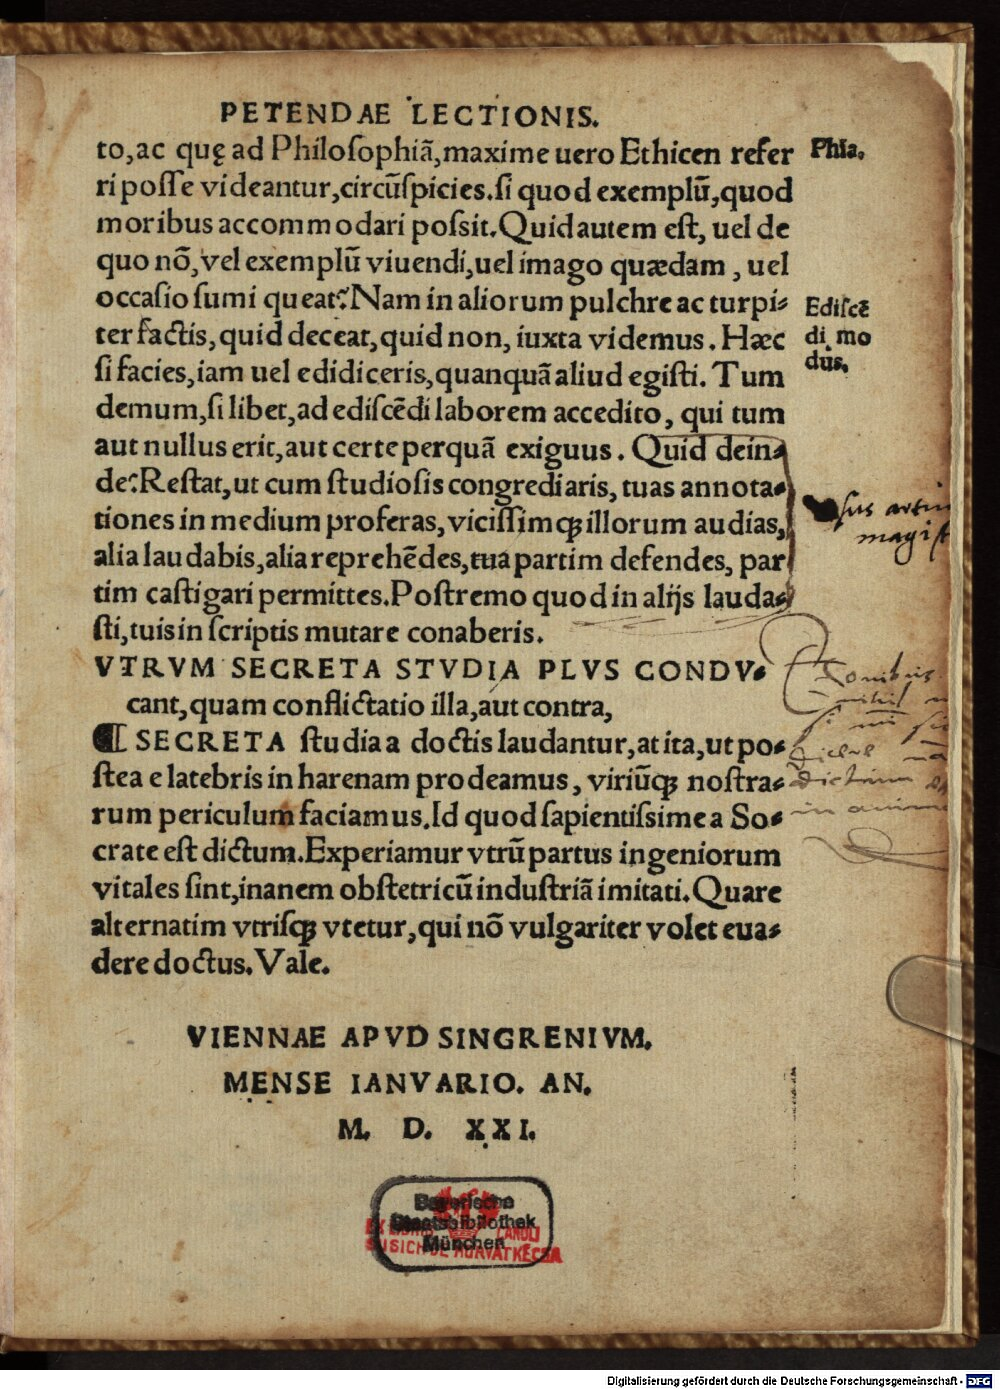 PETENDAE LECTIONIS.
to, ac quę ad Philoſophiã, maxime uero Ethicen refer
ri poſſe videantur, circũſpicies. ſi quod exemplũ, quod
moribus accommodari poſsit. Quid autem eſt, uel de
quo nõ, vel exemplũ viuendi, uel imago quædam, uel
occaſio ſumi queat? Nam in aliorum pulchre ac turpi-
ter factis, quid deceat, quid non, iuxta videmus. Hæc
ſi facies, iam uel edidiceris, quanquã aliud egiſti. Tum
demum, ſi libet, ad ediſcẽdi laborem accedito, qui tum
aut nullus erit, aut certe perquã exiguus. Quid dein-
de? Reſtat, ut cum ſtudioſis congrediaris, tuas annota-
tiones in medium proferas, viciſſimqꝫ illorum audias,
alia laudabis, alia reprehẽdes, tua partim defendes, par
tim caſtigari permittes. Poſtremo quod in alijs lauda-
ſti, tuis in ſcriptis mutare conaberis.
Phia.
Ediſcẽ
di mo
dus.
ſus artiu
magiſt
VTRVM SECRETA STVDIA PLVS CONDV-
cant, quam conflictatio illa, aut contra,
¶ SECRETA ſtudia a doctis laudantur, at ita, ut po-
ſtea e latebris in harenam prodeamus, viriũqꝫ noſtra-
rum periculum faciamus. Id quod ſapientiſsime a So-
crate eſt dictum. Experiamur vtrũ partus ingeniorum
vitales ſint, inanem obſtetricũ induſtriã imitati. Quare
alternatim vtriſqꝫ vtetur, qui nõ vulgariter volet eua-
dere doctus. Vale.
VIENNAE APVD SINGRENIVM.
MENSE IANVARIO. AN.
M. D. XXI.
Bayerische
Staatsbibliothek
München
EX LIBRIS
SUSICH DE HORVATKÉCSA
Digitalisierung gefördert durch die Deutsche Forschungsgemeinschaft - DFG